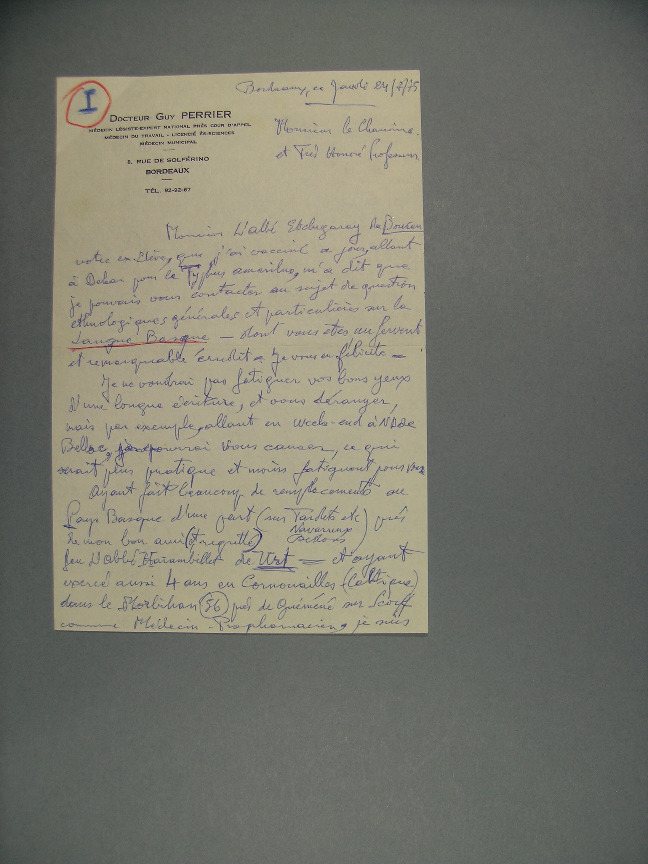 I
Bordeaux, ce Jeudi 24/7/75
DOCTEUR GUY PERRIER
MÉDECIN LÉGISTE-EXPERT NATIONAL PRÈS COUR D'APPEL
MÉDECIN DU TRAVAIL - LICENCIÉ ÈS-SCIENCES
MÉDECIN MUNICIPAL
Monsieur le Chanoine
et Très Honoré Professeur
5, RUE DE SOLFÉRINO
BORDEAUX
TÉL. 92-92-67
Monsieur L'abbé Etchegaray de
votre ex-élève, que j'ai vacciné ce jour, allant
à Dakar pour le Typhus amaril, m'a dit que
je pouvais vous contacter au sujet de question
ethnologiques générales et particulières sur la
Langue Basque — dont vous êtes un fervent
et remarquable érudit — Je vous en félicite —
Je ne voudrai pas fatiguer vos bons yeux
d'une longue écriture, et vous déranger,
mais par exemple, allant en week-end à
je pourrai vous causer, ce qui
serait plus pratique et moins fatiguant pour vous
Ayant fait beaucoup de remplacements au
Pays Basque d'une part (sur Tardets etc) près
Navarrenx
de mon bon ami (et regretté)
feu L'abbé Harambillet de Urt — et ayant
exercé aussi 4 ans en Cornouailles (Celtique)
dans le Morbihan (56) près de Guéméné sur Scorff
comme Médecin - Propharmacien, je suis